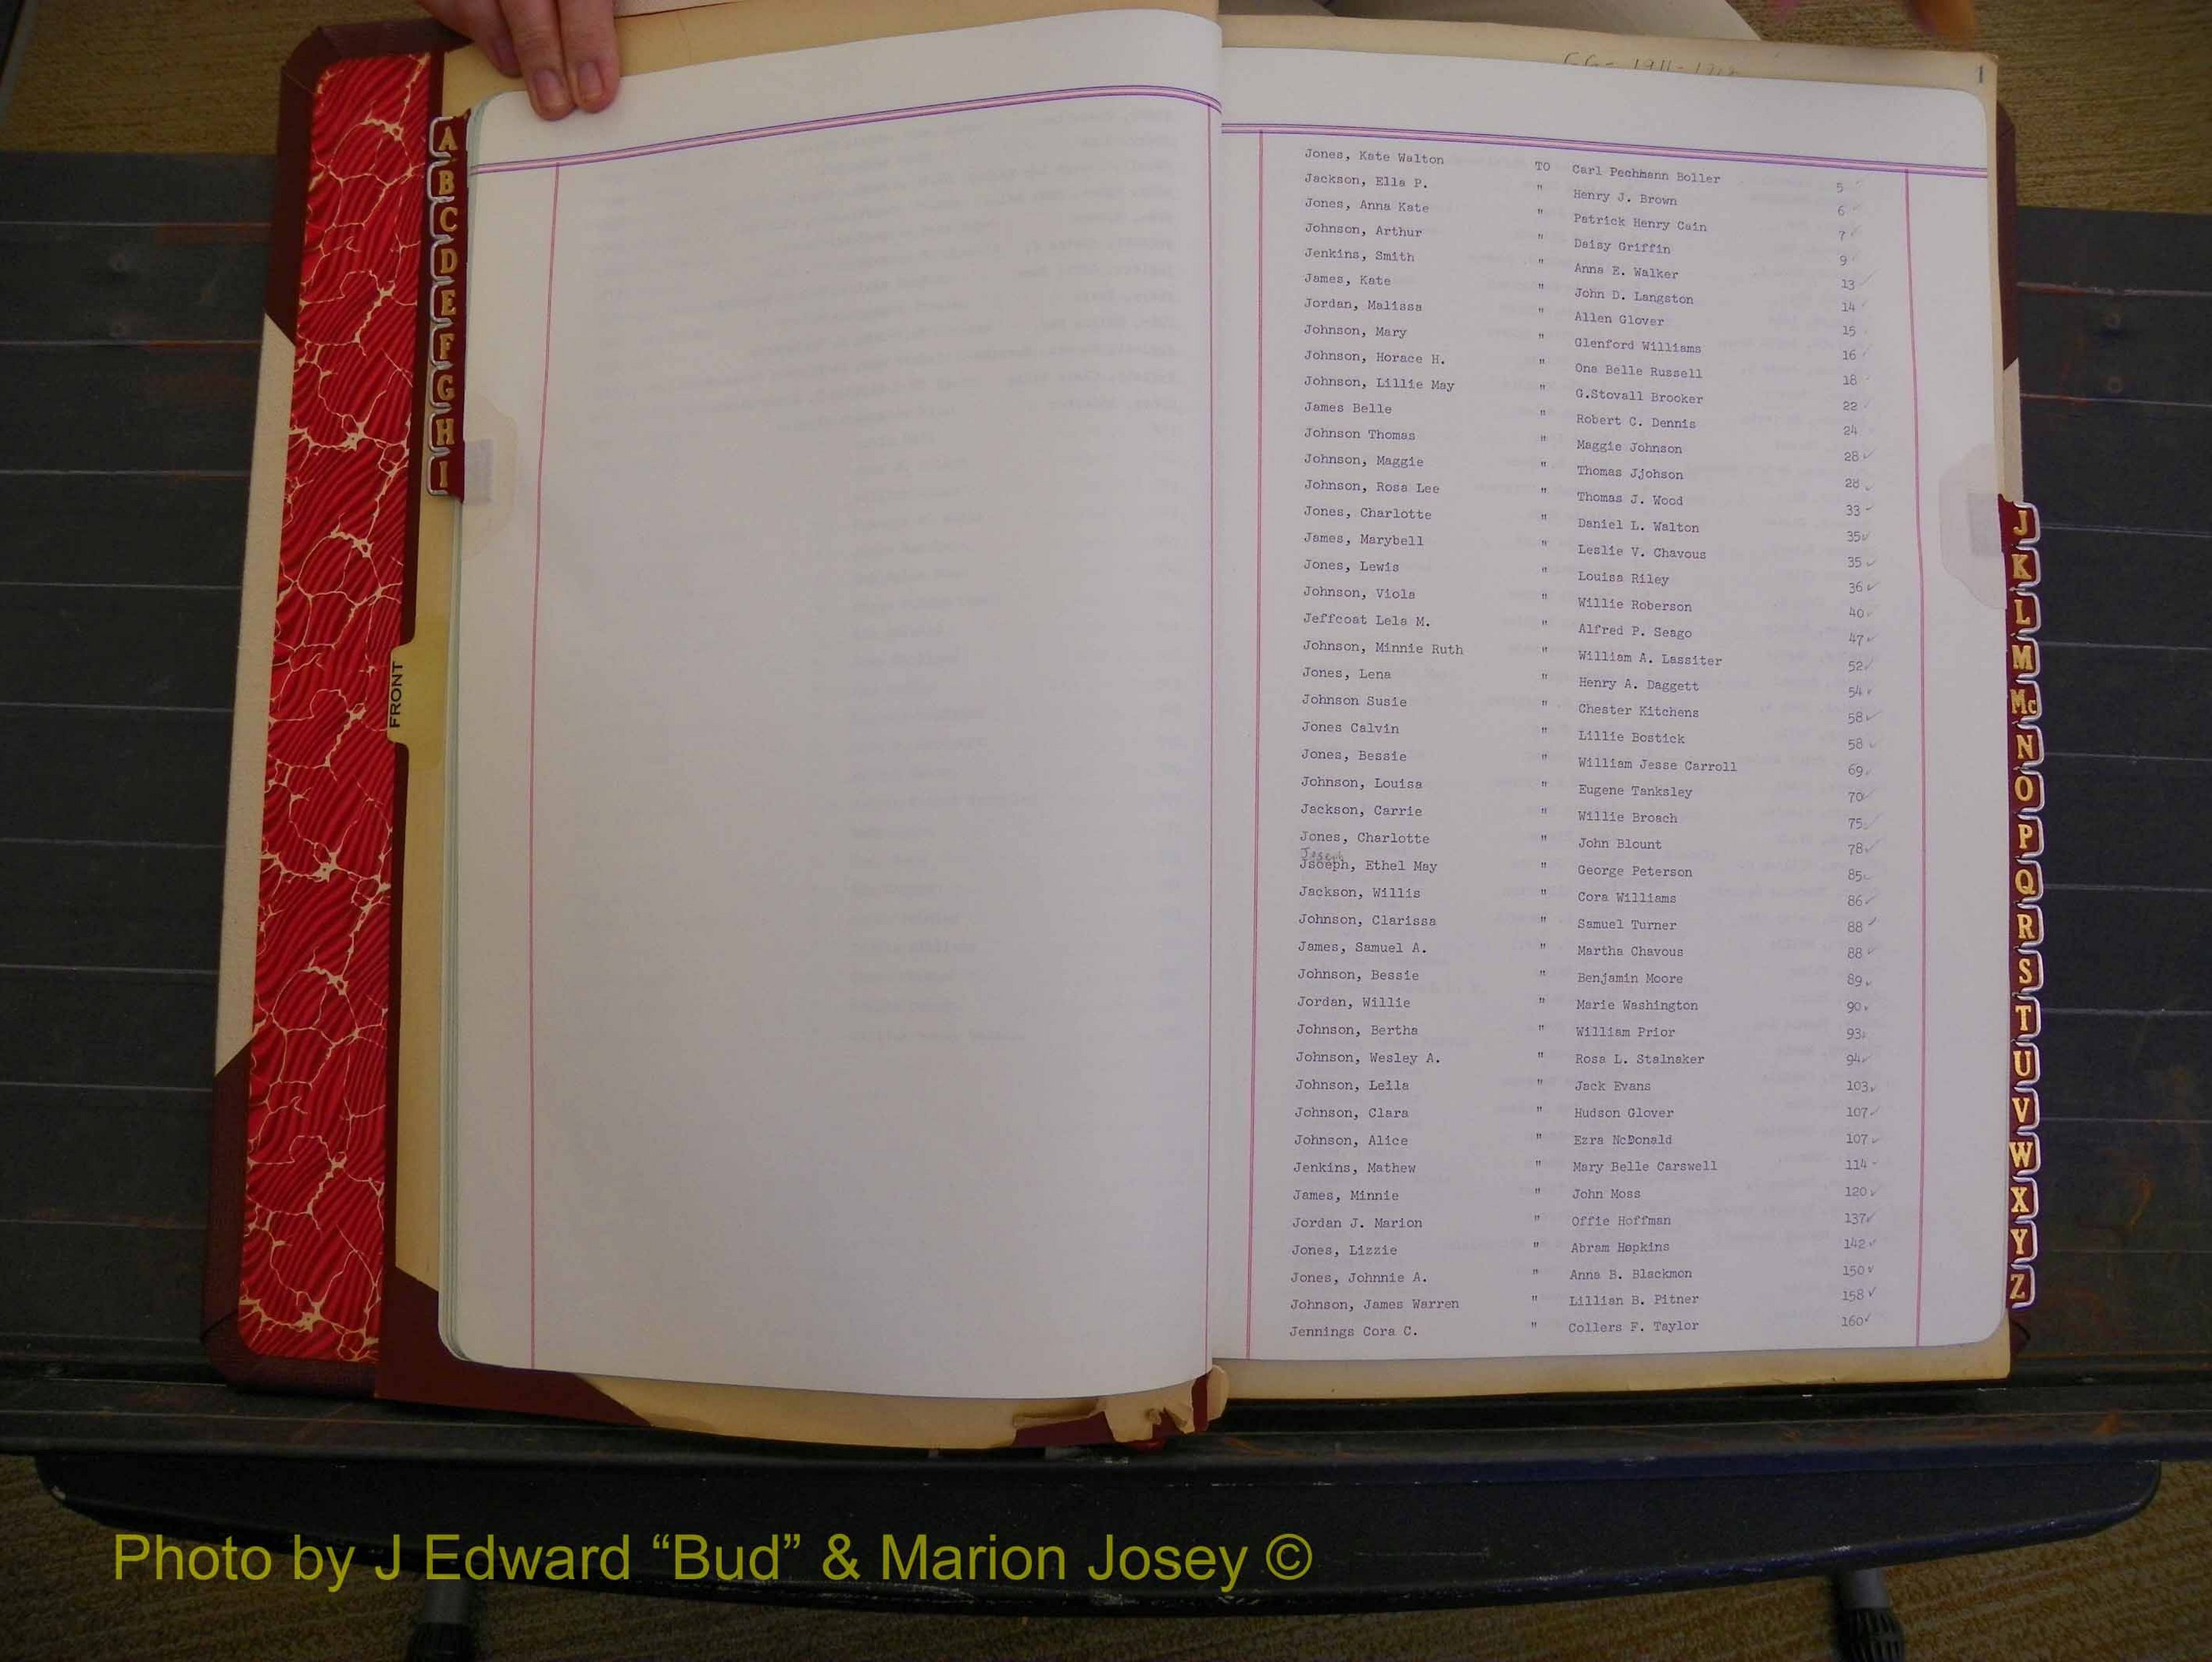 A
B
C
D
E
F
G
H
I
FRONT
1
Jones, Kate Walton TO Carl Pechmann Boller 5
Jackson, Ella P. " Henry J. Brown 6
Jones, Anna Kate " Patrick Henry Cain 7
Johnson, Arthur " Daisy Griffin 9
Jenkins, Smith " Anna E. Walker 13
James, Kate " John D. Langston 14
Jordan, Malissa " Allen Glover 15
Johnson, Mary " Glenford Williams 16
Johnson, Horace H. " Ona Belle Russell 18
Johnson, Lillie May " G.Stovall Brooker 22
James Belle " Robert C. Dennis 24
Johnson Thomas " Maggie Johnson 28
Johnson, Maggie " Thomas Jjohson 28
Johnson, Rosa Lee " Thomas J. Wood 33
Jones, Charlotte " Daniel L. Walton 35
James, Marybell " Leslie V. Chavous 35
Jones, Lewis " Louisa Riley 36
Johnson, Viola " Willie Roberson 40
Jeffcoat Lela M. " Alfred P. Seago 47
Johnson, Minnie Ruth " William A. Lassiter 52
Jones, Lena " Henry A. Daggett 54
Johnson Susie " Chester Kitchens 58
Jones Calvin " Lillie Bostick 58
Jones, Bessie " William Jesse Carroll 69
Johnson, Louisa " Eugene Tanksley 70
Jackson, Carrie " Willie Broach 75
Jones, Charlotte " John Blount 78
Joseph
Jsoeph, Ethel May " George Peterson 85
Jackson, Willis " Cora Williams 86
Johnson, Clarissa " Samuel Turner 88
James, Samuel A. " Martha Chavous 88
Johnson, Bessie " Benjamin Moore 89
Jordan, Willie " Marie Washington 90
Johnson, Bertha " William Prior 93
Johnson, Wesley A. " Rosa L. Stalnaker 94
Johnson, Leila " Jack Evans 103
Johnson, Clara " Hudson Glover 107
Johnson, Alice " Ezra McDonald 107
Jenkins, Mathew " Mary Belle Carswell 114
James, Minnie " John Moss 120
Jordan J. Marion " Offie Hoffman 137
Jones, Lizzie " Abram Hopkins 142
Jones, Johnnie A. " Anna B. Blackmon 150
Johnson, James Warren " Lillian B. Pitner 158
Jennings Cora C. " Collers F. Taylor 160
J
K
L
M
Mc
N
O
P
Q
R
S
T
U
V
W
X
Y
Z
Photo by J Edward “Bud” & Marion Josey ©